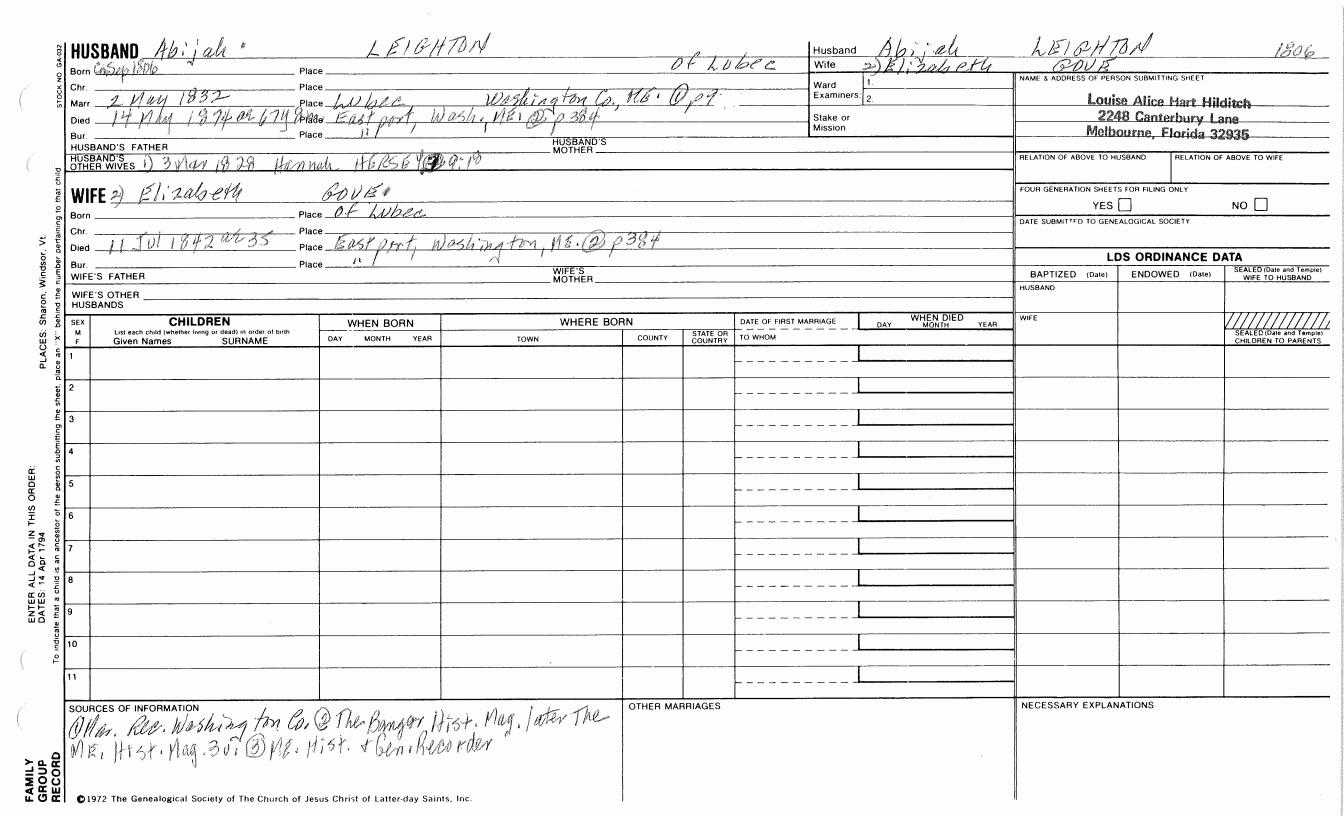 HUSBAND Abijah LEIGHTON
Born Ca Sep 1806 Place of Lubec
Chr. Place
Marr 2 May 1832 Place Lubec, Washington Co., ME. ① p9
Died 14 May 1874 ae 67 Place Eastport, Wash., ME. ② p 384
Bur. Place "
HUSBAND'S FATHER HUSBAND'S MOTHER
HUSBAND'S OTHER WIVES 1) 3 Mar 1828 Hannah
WIFE 2) Elizabeth GOVE
Born Place of Lubec
Chr. Place
Died 11 Jul 1842 ae 35 Place Eastport, Washington, ME. ② p384
Bur. Place "
WIFE'S FATHER WIFE'S MOTHER
WIFE'S OTHER HUSBANDS
Husband Abijah LEIGHTON 1806
Wife 2) Elizabeth GOVE
Ward Examiners: 1. 2.
Stake or Mission
NAME & ADDRESS OF PERSON SUBMITTING SHEET
Louise Alice Hart Hilditch
2248 Canterbury Lane
Melbourne, Florida 32935
RELATION OF ABOVE TO HUSBAND RELATION OF ABOVE TO WIFE
FOUR GENERATION SHEETS FOR FILING ONLY
YES NO
DATE SUBMITTED TO GENEALOGICAL SOCIETY
LDS ORDINANCE DATA
BAPTIZED (Date) ENDOWED (Date) SEALED (Date and Temple) WIFE TO HUSBAND
HUSBAND
WIFE
SEALED (Date and Temple) CHILDREN TO PARENTS
SEX M F
CHILDREN
List each child (whether living or dead) in order of birth
Given Names SURNAME
WHEN BORN
DAY MONTH YEAR
WHERE BORN
TOWN COUNTY STATE OR COUNTRY
DATE OF FIRST MARRIAGE
TO WHOM
WHEN DIED
DAY MONTH YEAR
1
2
3
4
5
6
7
8
9
10
11
SOURCES OF INFORMATION
① Mar. Rec. Washington Co. ② The Bangor Hist. Mag. later The
ME. Hist. Mag. 3 vi ③ ME. Hist. & Gen. Recorder
OTHER MARRIAGES
NECESSARY EXPLANATIONS
©1972 The Genealogical Society of The Church of Jesus Christ of Latter-day Saints, Inc.
STOCK NO. GA-032
To indicate that a child is an ancestor of the person submitting the sheet, place an "X" behind the number pertaining to that child
ENTER ALL DATA IN THIS ORDER:
DATES: 14 Apr 1794 PLACES: Sharon, Windsor, Vt.
FAMILY
GROUP
RECORD